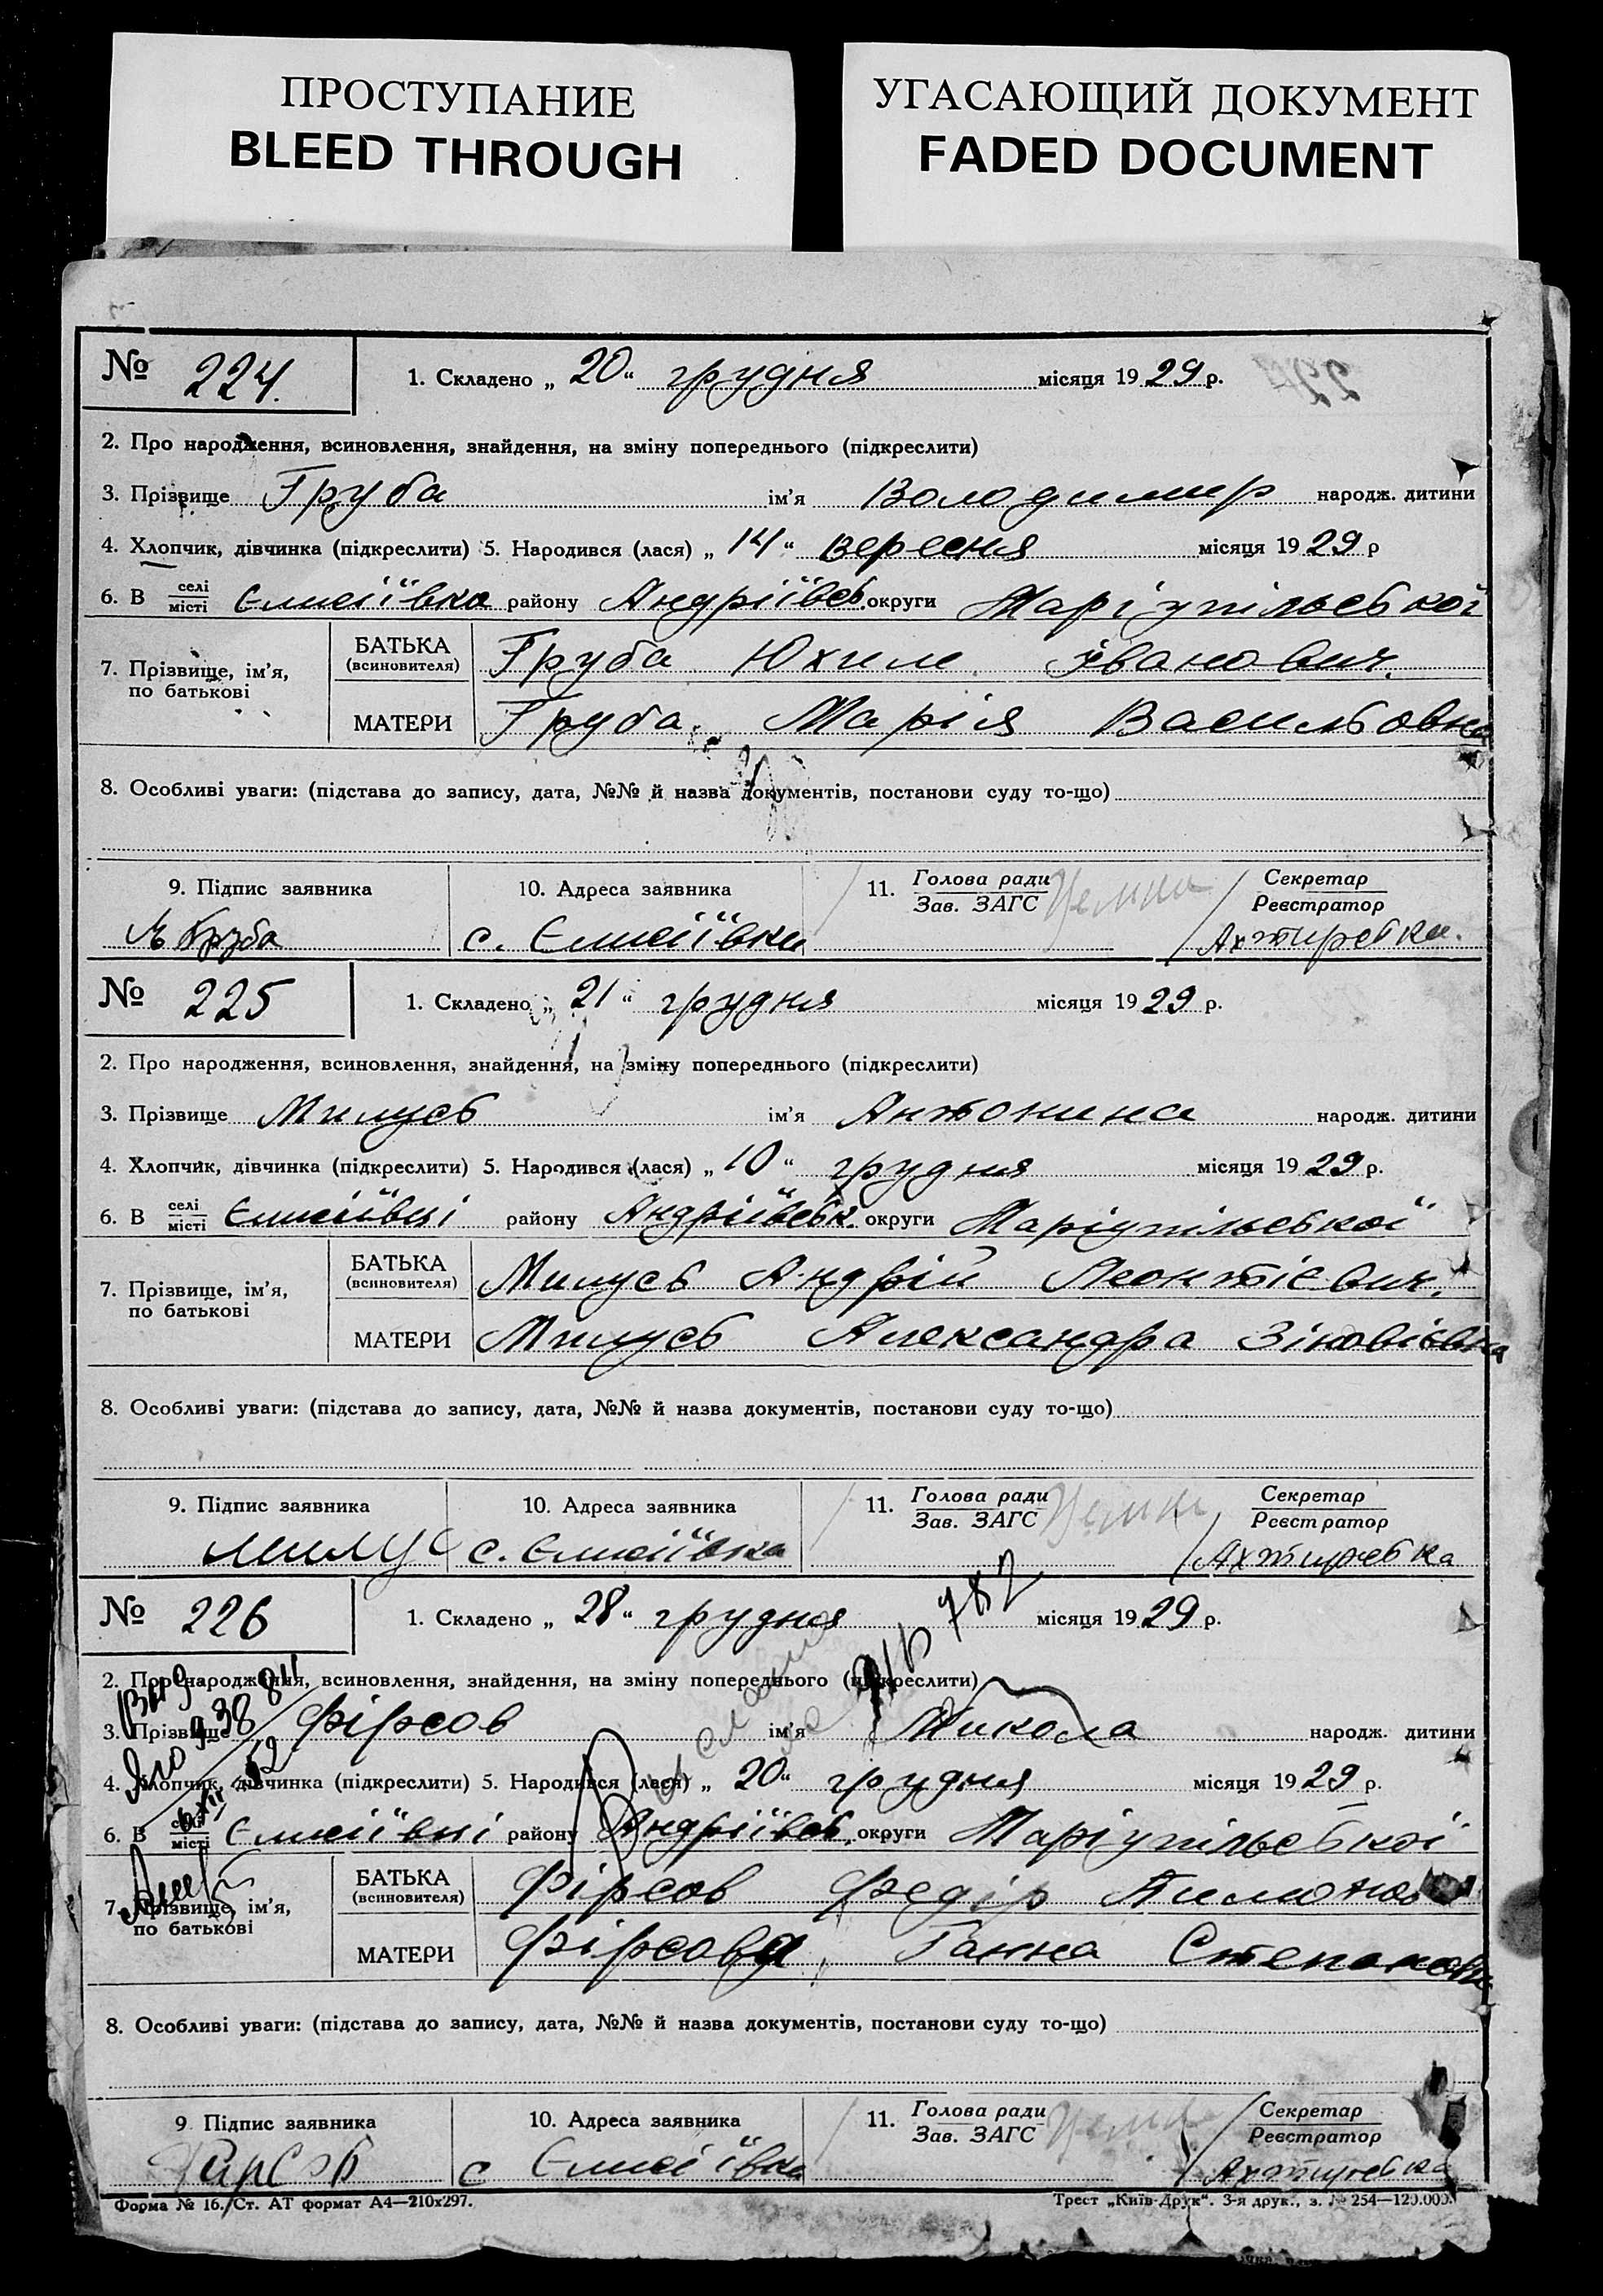 ПРОСТУПАНИЕ
BLEED THROUGH
УГАСАЮЩИЙ ДОКУМЕНТ
FADED DOCUMENT
№ 224. 1. Складено „ 20 “ грудня місяця 1929 р.
2. Про народження, всиновлення, знайдення, на зміну попереднього (підкреслити)
3. Прізвище Груба ім'я Володимир народж. дитини
4. Хлопчик, дівчинка (підкреслити) 5. Народився (лася) „ 14 “ вересня місяця 1929 р
6. В селі місті Єлисіївка району Андріївсь. округи Маріупільської
7. Прізвище, ім'я, по батькові
БАТЬКА (всиновителя) Груба Юхим Іванович.
МАТЕРИ Груба Марія Васильовна
8. Особливі уваги: (підстава до запису, дата, №№ й назва документів, постанови суду то-що)
9. Підпис заявника 10. Адреса заявника 11. Голова ради Зав. ЗАГС Секретар Реєстратор
Груба с. Єлисіївка
№ 225 1. Складено „ 21 “ грудня місяця 1929 р.
2. Про народження, всиновлення, знайдення, на зміну попереднього (підкреслити)
3. Прізвище Милусь ім'я Антонина народж. дитини
4. Хлопчик, дівчинка (підкреслити) 5. Народився (лася) „ 10 “ грудня місяця 1929 р.
6. В селі місті Єлисіївці району Андріївськ. округи Маріупільської
7. Прізвище, ім'я, по батькові
БАТЬКА (всиновителя) Милусь Андрій Леонтієвич.
МАТЕРИ Милусь Александра Зіновіївна
8. Особливі уваги: (підстава до запису, дата, №№ й назва документів, постанови суду то-що)
9. Підпис заявника 10. Адреса заявника 11. Голова ради Зав. ЗАГС Секретар Реєстратор
Милус с. Єлисіївка
№ 226 1. Складено „ 28 “ грудня місяця 1929 р.
2. Про народження, всиновлення, знайдення, на зміну попереднього (підкреслити)
3. Прізвище Фірсов ім'я Микола народж. дитини
4. Хлопчик, дівчинка (підкреслити) 5. Народився (лася) „ 20 “ грудня місяця 1929 р.
6. В селі місті Єлисіївці району Андріївсь. округи Маріупільської
7. Прізвище, ім'я, по батькові
БАТЬКА (всиновителя) Фірсов Федір
МАТЕРИ Фірсова Ганна Степановн
8. Особливі уваги: (підстава до запису, дата, №№ й назва документів, постанови суду то-що)
9. Підпис заявника 10. Адреса заявника 11. Голова ради Зав. ЗАГС Секретар Реєстратор
Фирсов с Єлисіївка
Форма № 16. Ст. АТ формат А4—210х297. Трест „Київ-Друк“. 3-я друк., з. № 254—120.000.